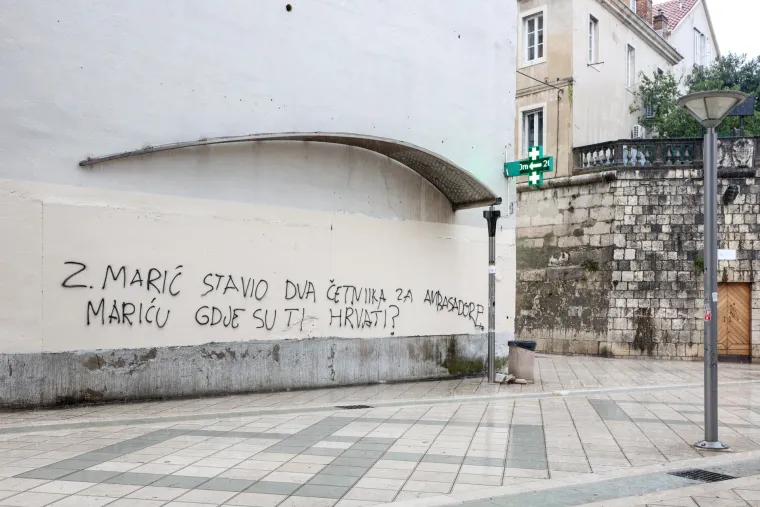 Z. MARIĆ STAVIO DVA ČETNIKA ZA AMBASADORE
MARIĆU GDJE SU TI HRVATI?